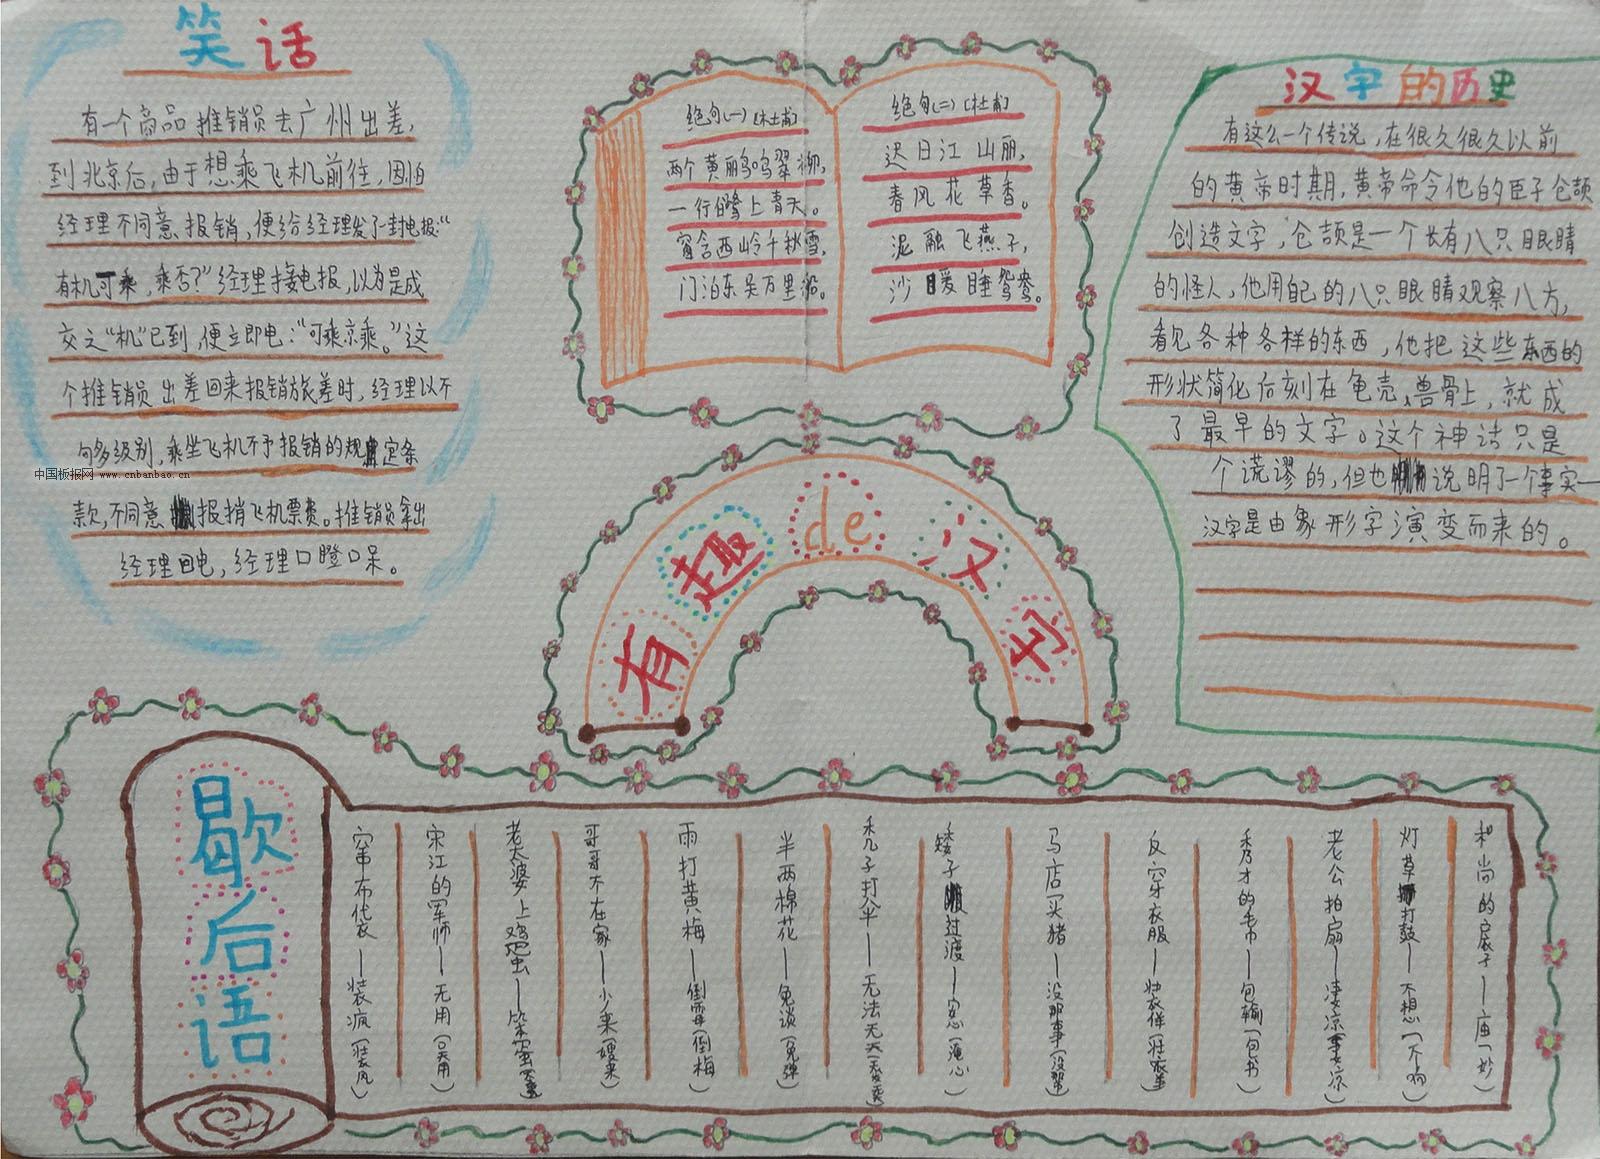 笑话
有一个商品推销员去广州出差，
到北京后，由于想乘飞机前往，因怕
经理不同意报销，便给经理发了一封电报：“
有机可乘，乘否？”经理接电报，以为是成
交之“机”已到，便立即电：“可乘京乘。”这
个推销员出差回来报销旅差时，经理以不
句多级别，乘坐飞机不予报销的规定条
款，不同意报捎飞机票费。推销员拿出
经理回电，经理口瞪口呆。
中国板报网 www.cnbanbao.cn
绝句(一)[杜甫]
两个黄鹂鸣翠柳，
一行白鹭上青天。
窗含西岭千秋雪，
门泊东吴万里船。
绝句(二)[杜甫]
迟日江山丽，
春风花草香。
泥融飞燕子，
沙暖睡鸳鸯。
汉字的历史
有这么一个传说，在很久很久以前
的黄帝时期，黄帝命令他的臣子仓颉
创造文字，仓颉是一个长有八只眼睛
的怪人，他用自己的八只眼睛观察八方，
看见各种各样的东西，他把这些东西的
形状简化后刻在龟壳、兽骨上，就成
了最早的文字。这个神话只是
个谎谬的，但也说明了一个事实—
汉字是由象形字演变而来的。
有趣de汉字
歇后语
帘布袋—装疯(装风)
宋江的军师—无用(吴用)
老太婆上鸡
哥哥不在家—少来(嫂来)
雨打黄梅—倒霉(倒梅)
半两棉花—免谈(免弹)
秃子打伞—无法无天
矮子过渡—安心(淹心)
马店买猪—没那事
反穿衣服—装佯
秀才的毛巾—包输(包书)
老公拍扇—凄凉(妻凉)
灯草打鼓—不想(不响)
和尚的房子—庙(妙)